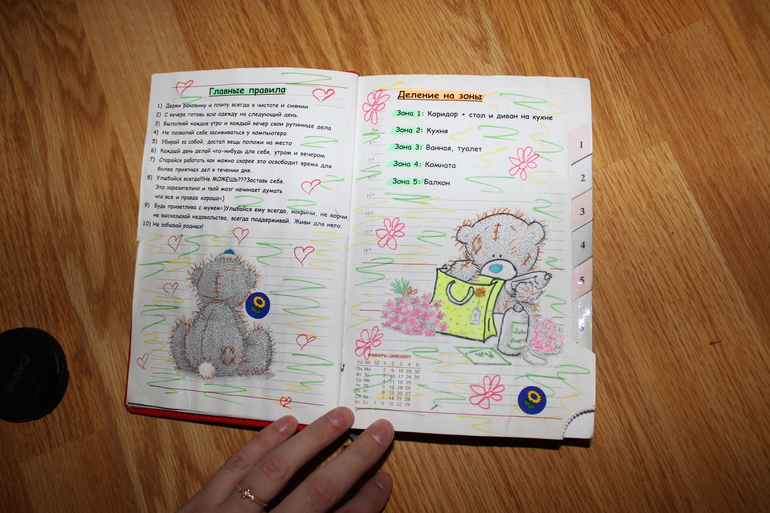 Главные правила
1) Держи раковину и плиту всегда в чистоте и сиянии
2) С вечера готовь всю одежду на следующий день.
3) Выполняй каждое утро и каждый вечер свои рутинные дела
4) Не позволяй себе засиживаться у компьютера
5) Убирай за собой, достал вещь положи на место
6) Каждый день делай что-нибудь для себя, утром и вечером
7) Старайся работать как можно скорее это освободит время для
более приятных дел в течении дня.
8) Улыбайся всегда!!!Не МОЖЕШЬ???Заставь себя.
Это заразительно и твой мозг начинает думать
что все и правда хорошо=)
9) Будь приветлива с мужем=)Улыбайся ему всегда, мокричи, не ворчи
не высказывай недовольства, всегда поддерживай. Живи для него.
10) Не забывай родных!
Деление на зоны
Зона 1: Коридор + стол и диван на кухне
Зона 2: Кухня
Зона 3: Ванная, туалет
Зона 4: Комната
Зона 5: Балкон
1
2
3
4
5
6
ЯНВАРЬ/JANUARY
Canon